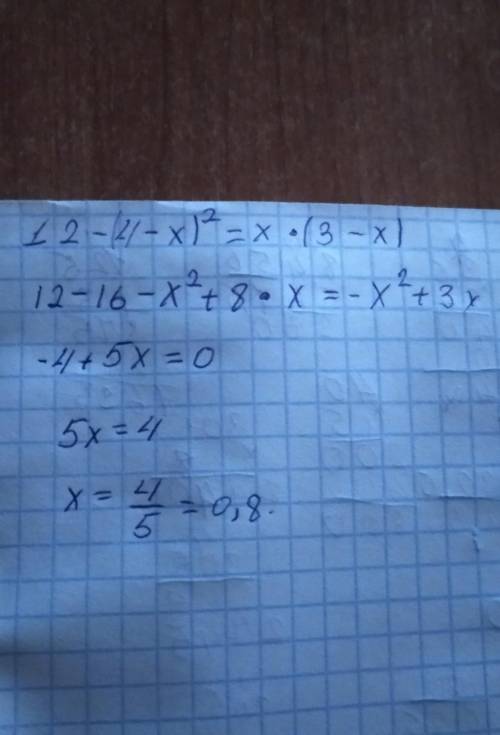 12-(4-x)²=x·(3-x)
12-16-x²+8·x=-x²+3x
-4+5x=0
5x=4
x=4/5=0,8.